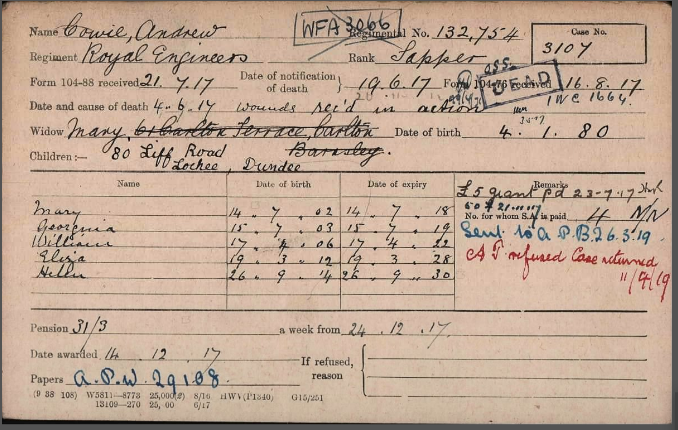 Name Cowie, Andrew WFA 3066 Regimental No. 132,754 Case No.
3107
Regiment Royal Engineers Rank Sapper
Form 104-88 received 21.7.17 Date of notification of death } 19.6.17 Form 104-76 received 16.8.17
DEAD
Date and cause of death 4-6-17 wounds rec'd in action WC 1664
Widow Mary, 61 Carlton Terrace, Carlton Date of birth 4. 1. 80
Barnsley.
Children :— 80 Liff Road
Lochee, Dundee
Name Date of birth Date of expiry Remarks
£5 grant pd 23-7-17
Mary 14 " 7 " 02 14 " 7 " 18
No. for whom S.A. is paid 4
Georgina 15 " 7 " 03 15 " 7 " 19
William 17 " 4 " 06 17 " 4 " 22
Sent to A.P.B. 26.3.19
Eliza 19 " 3 " 12 19 " 3 " 28
A P. refused Case returned
Helen 26 " 9 " 14 26 " 9 " 30
11/4/19
Pension 31/3 a week from 24 . 12 . 17.
Date awarded 14 . 12 . 17
If refused, reason
Papers A.P.W. 29108.
(9 38 108) W5811—8773 25,000(2) 8/16 HWV(P1340) G15/251
13109—270 25,00 6/17